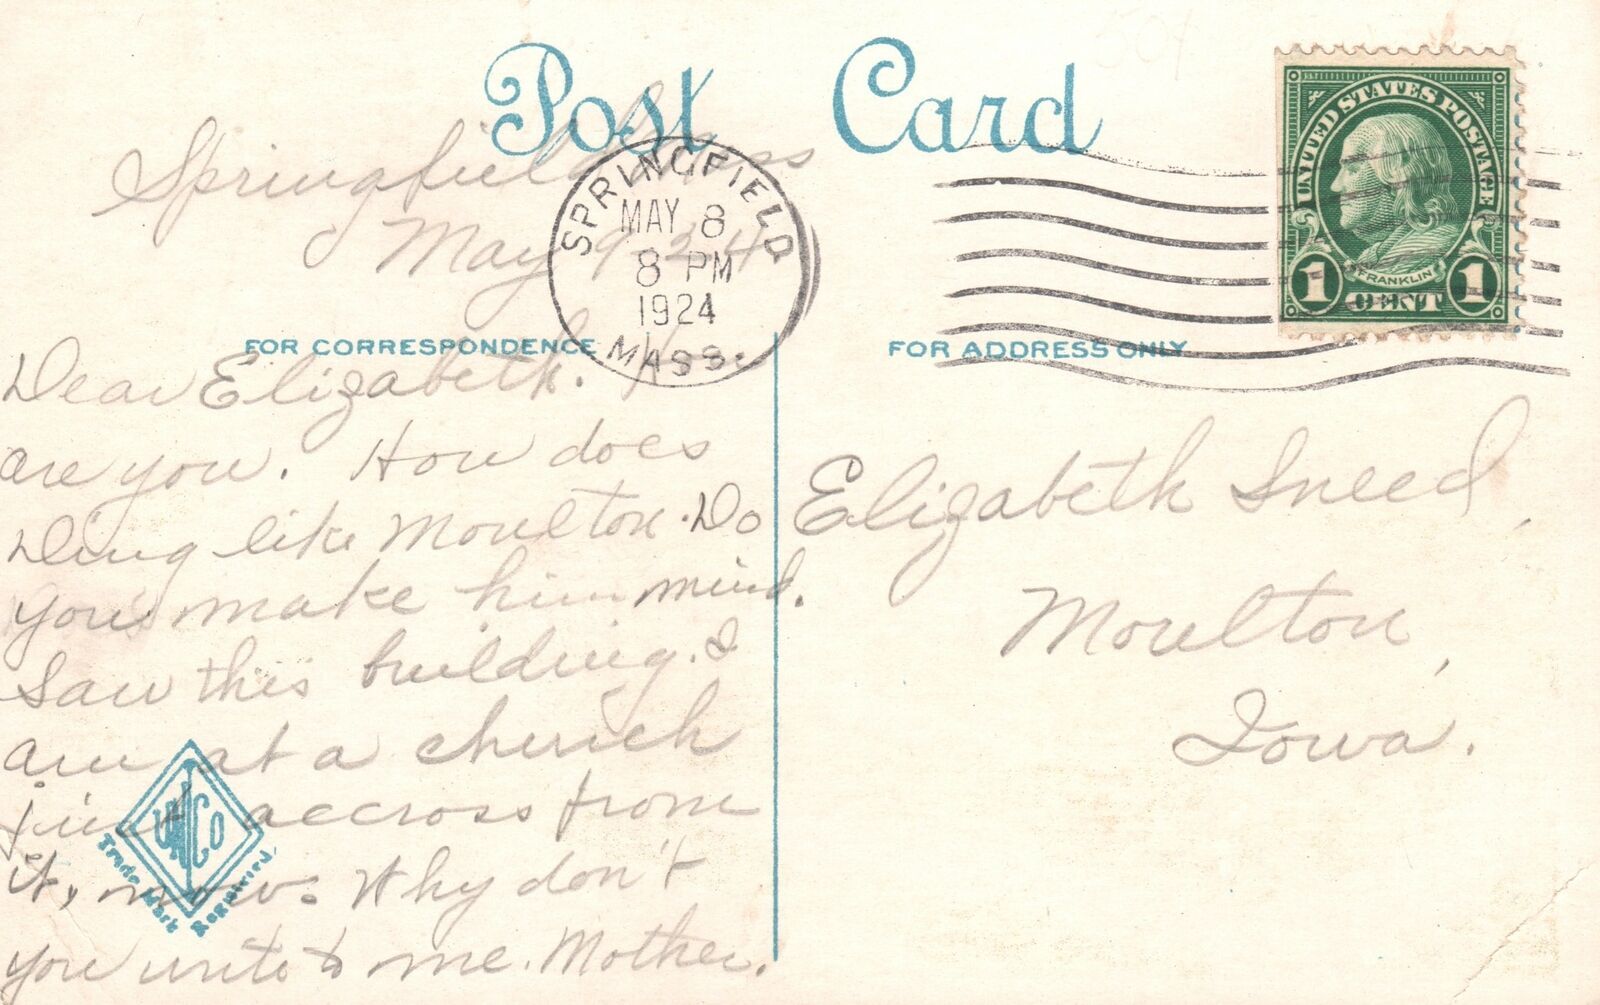 Post Card
Springfield Mass
May 9-24
SPRINGFIELD
MAY 8
8 PM
1924
MASS.
UNITED STATES POSTAGE
FRANKLIN
1 CENT 1
FOR CORRESPONDENCE
FOR ADDRESS ONLY
Dear Elizabeth.
are you. How does
Ding like Moulton. Do
you make him mind.
Saw this building. I
am at a church
just accross from
it, now. Why don't
you write to me. Mother.
Elizabeth Sneed,
Moulton,
Iowa.
Trade Mark Registered